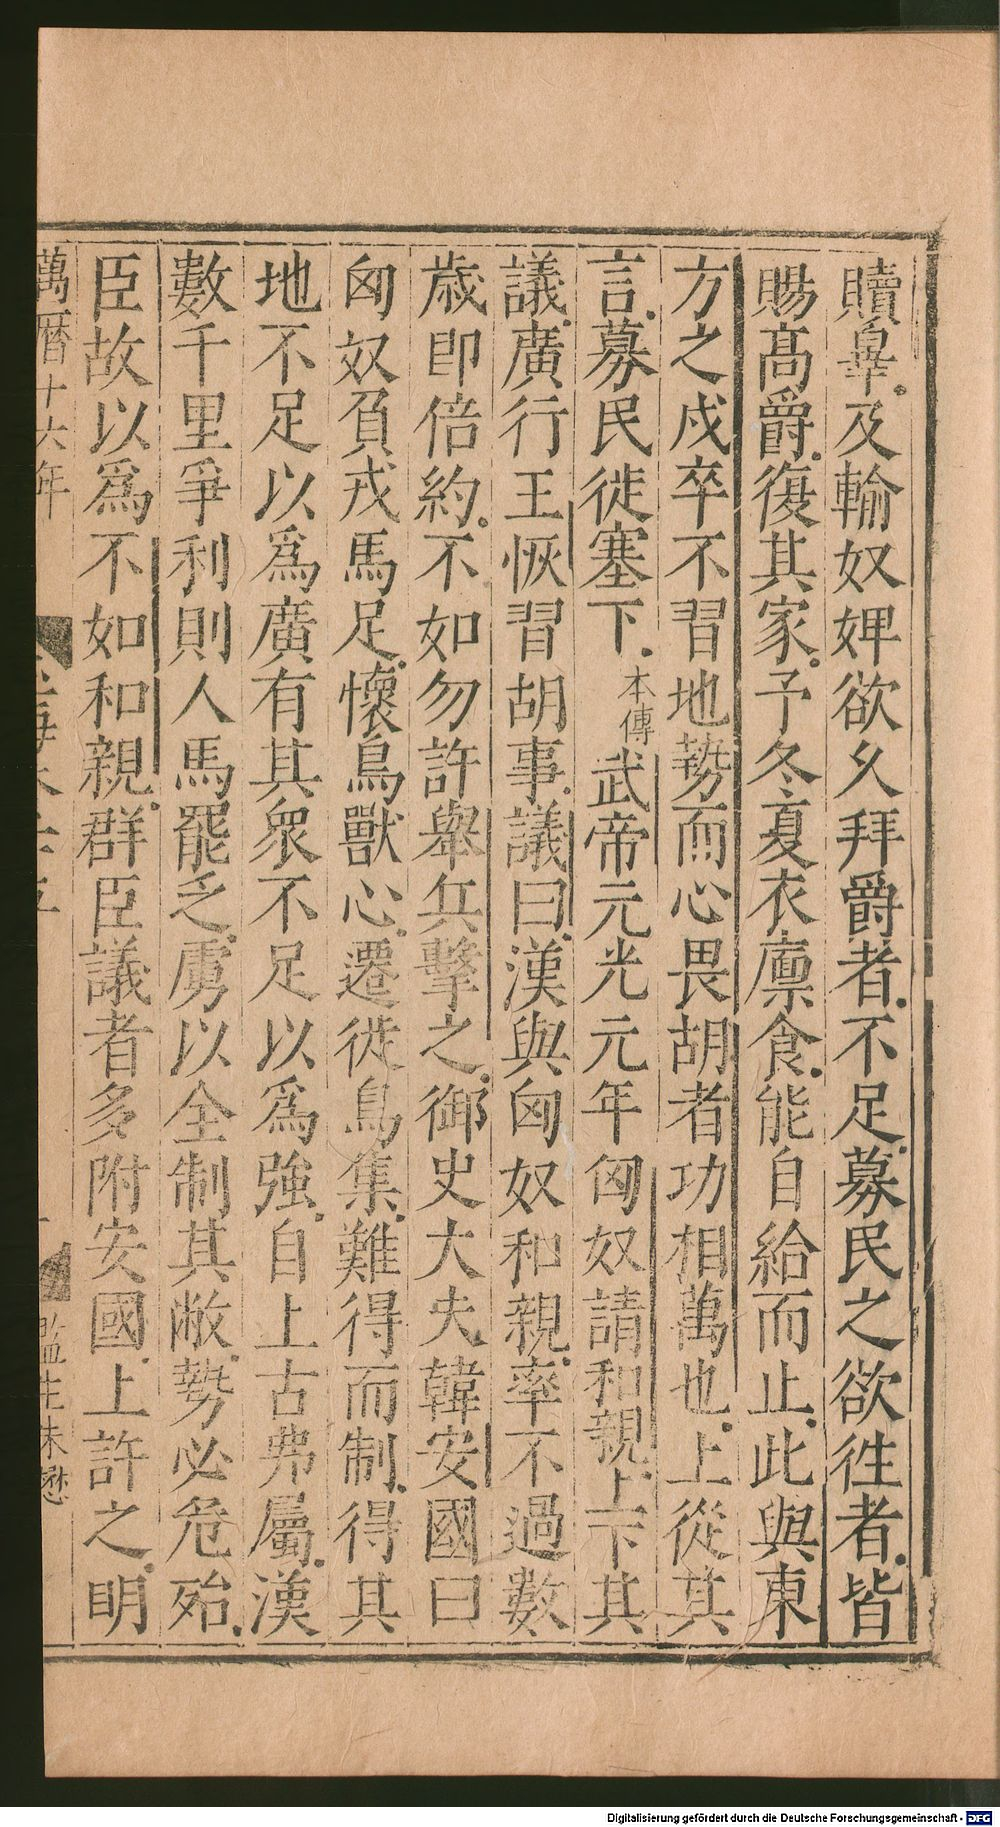 贖辠。及輸奴婢欲以拜爵者。不足。募民之欲徃者。皆
賜髙爵。復其家。予冬夏衣廪食。能自給而止。此與東
方之戍卒不習地勢而心畏胡者功相萬也。上從其
言。募民徙塞下。本傳武帝元光元年匈奴請和親。上下其
議。廣行王恢習胡事。議曰。漢與匈奴和親。率不過數
歳即倍約。不如勿許舉兵擊之。御史大夫韓安國曰
匈奴負戎馬足。懷鳥獸心。遷徙鳥集。難得而制。得其
地不足以爲廣有其衆不足以爲強。自上古弗屬。漢
數千里爭利則人馬罷乏。虜以全制其敝。勢必危殆。
臣故以爲不如和親。群臣議者多附安國。上許之。明
萬曆十六年
監生朱懋
Digitalisierung gefördert durch die Deutsche Forschungsgemeinschaft - DFG